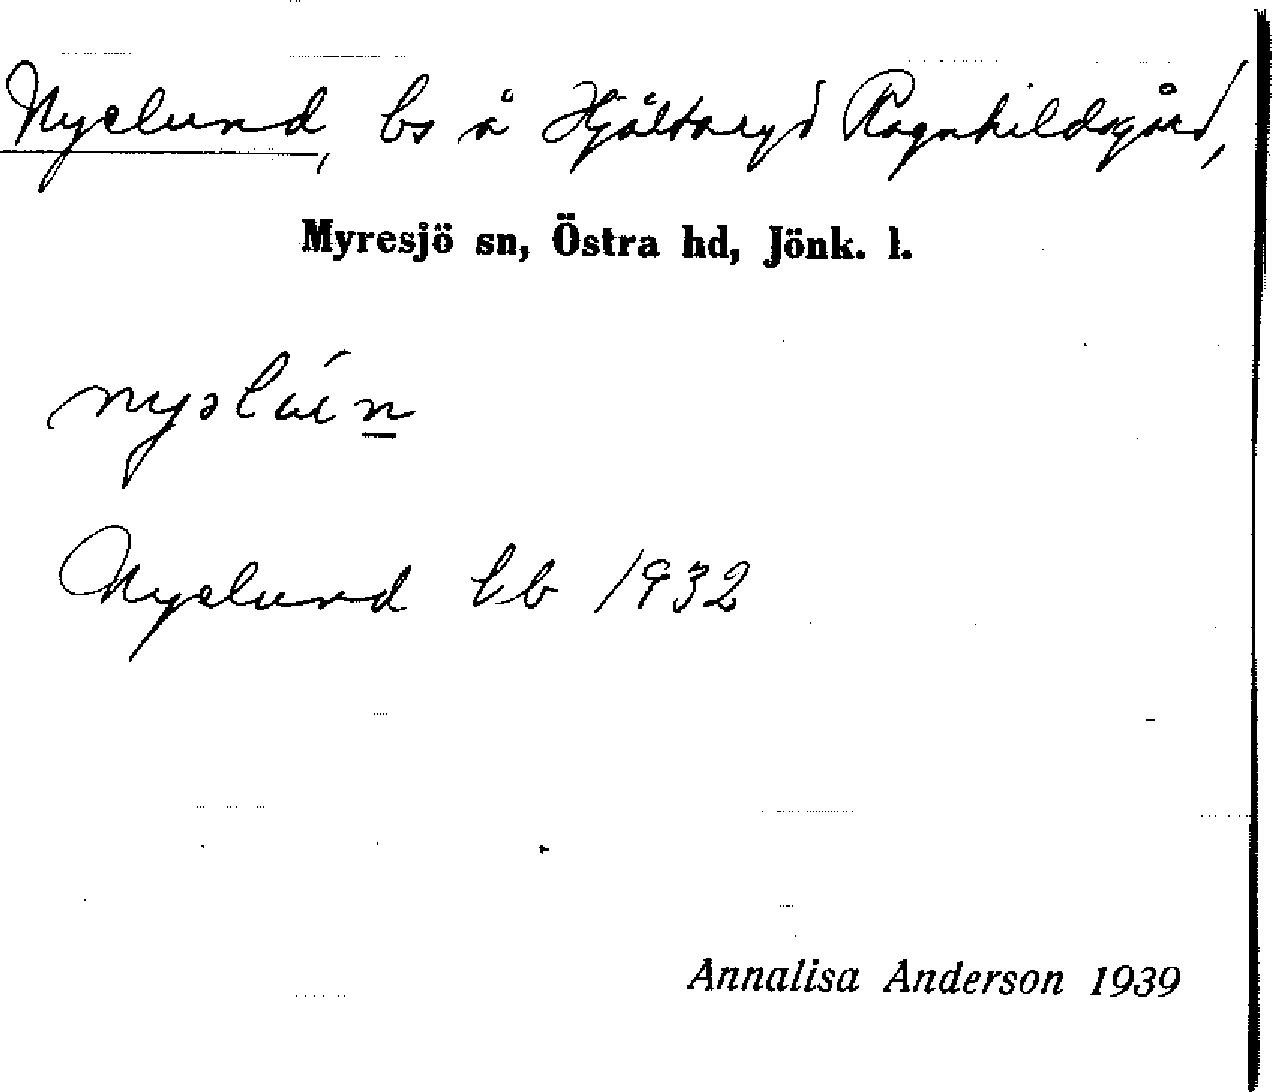 Nyelund, bs å Hjältaryd Ragnhildsgård,
Myresjö sn, Östra hd, Jönk. l.
Nyelund lb 1932
Annalisa Anderson 1939